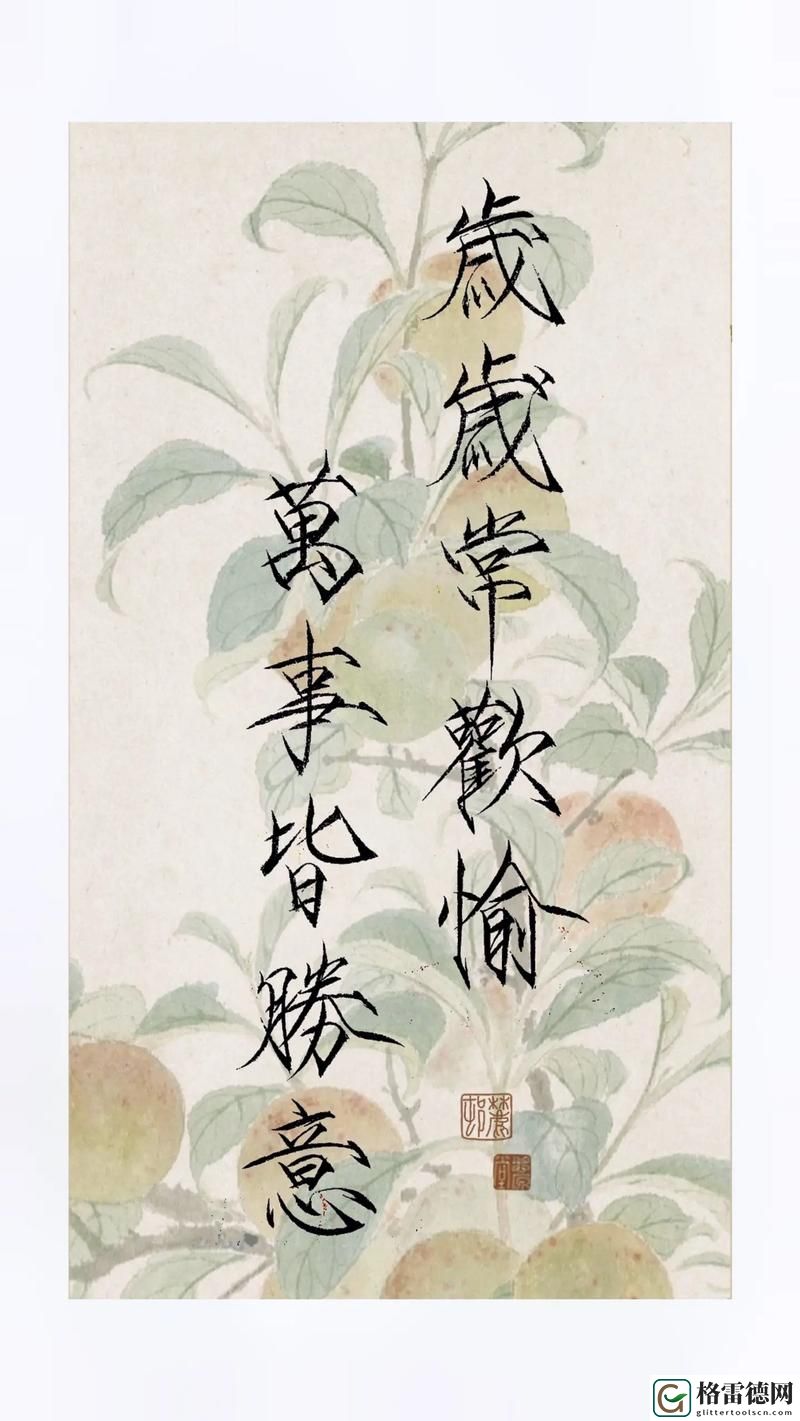 歲歲常歡愉
萬事皆勝意
格雷德网
glittertoolscn.com